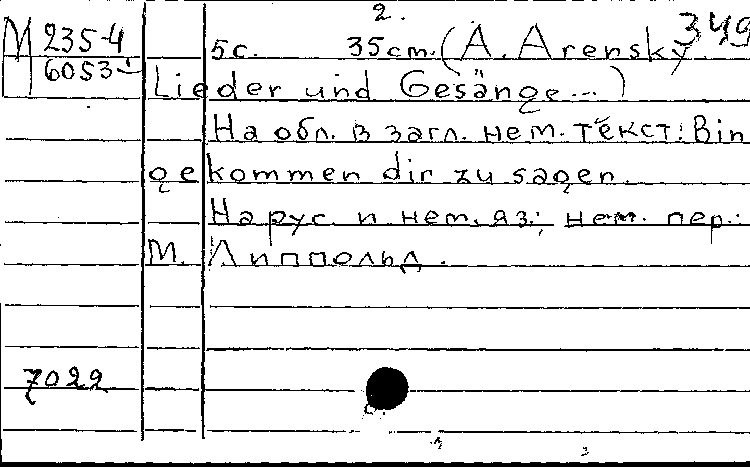 2.
349
М 235-4
6053-i
5с. 35cm. (A. Arensky
Lieder und Gesänge...)
На обл. в загл. нем. текст: Bin
gekommen dir zu sagen.
На рус. и нем. яз.; нем. пер.:
М. Липпольд.
7022